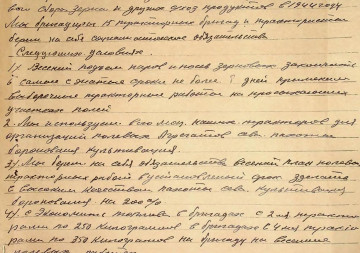 вои сбора зерна и других видов продуктов в 1944 году
Мы бригадиры 15 тракторных бригад и трактористы
берем на себя социалистические обязательства
Следующие договать.
1/ Весенний подъем паров и посев зерновых закончить
в самые сжатые сроки не более дней применяем
выборочные тракторные работы на просыхающих
участках полей
2. Мы используем всю мощ. наших тракторов для
организаций полевых агрегатов сева пахоты
боронования культивация.
3) Мы берем на себя обязательства весенний план полевых
тракторных работ в установленный срок сделать
с высоким качеством пахоты сева культивации
боронования на 200%
4) с Экономить топлива в бригадах с 2 мя тракто
рами по 250 килограммов в бригадах с 4 мя тракто
рами по 350 килограммов на бригаду на весенних